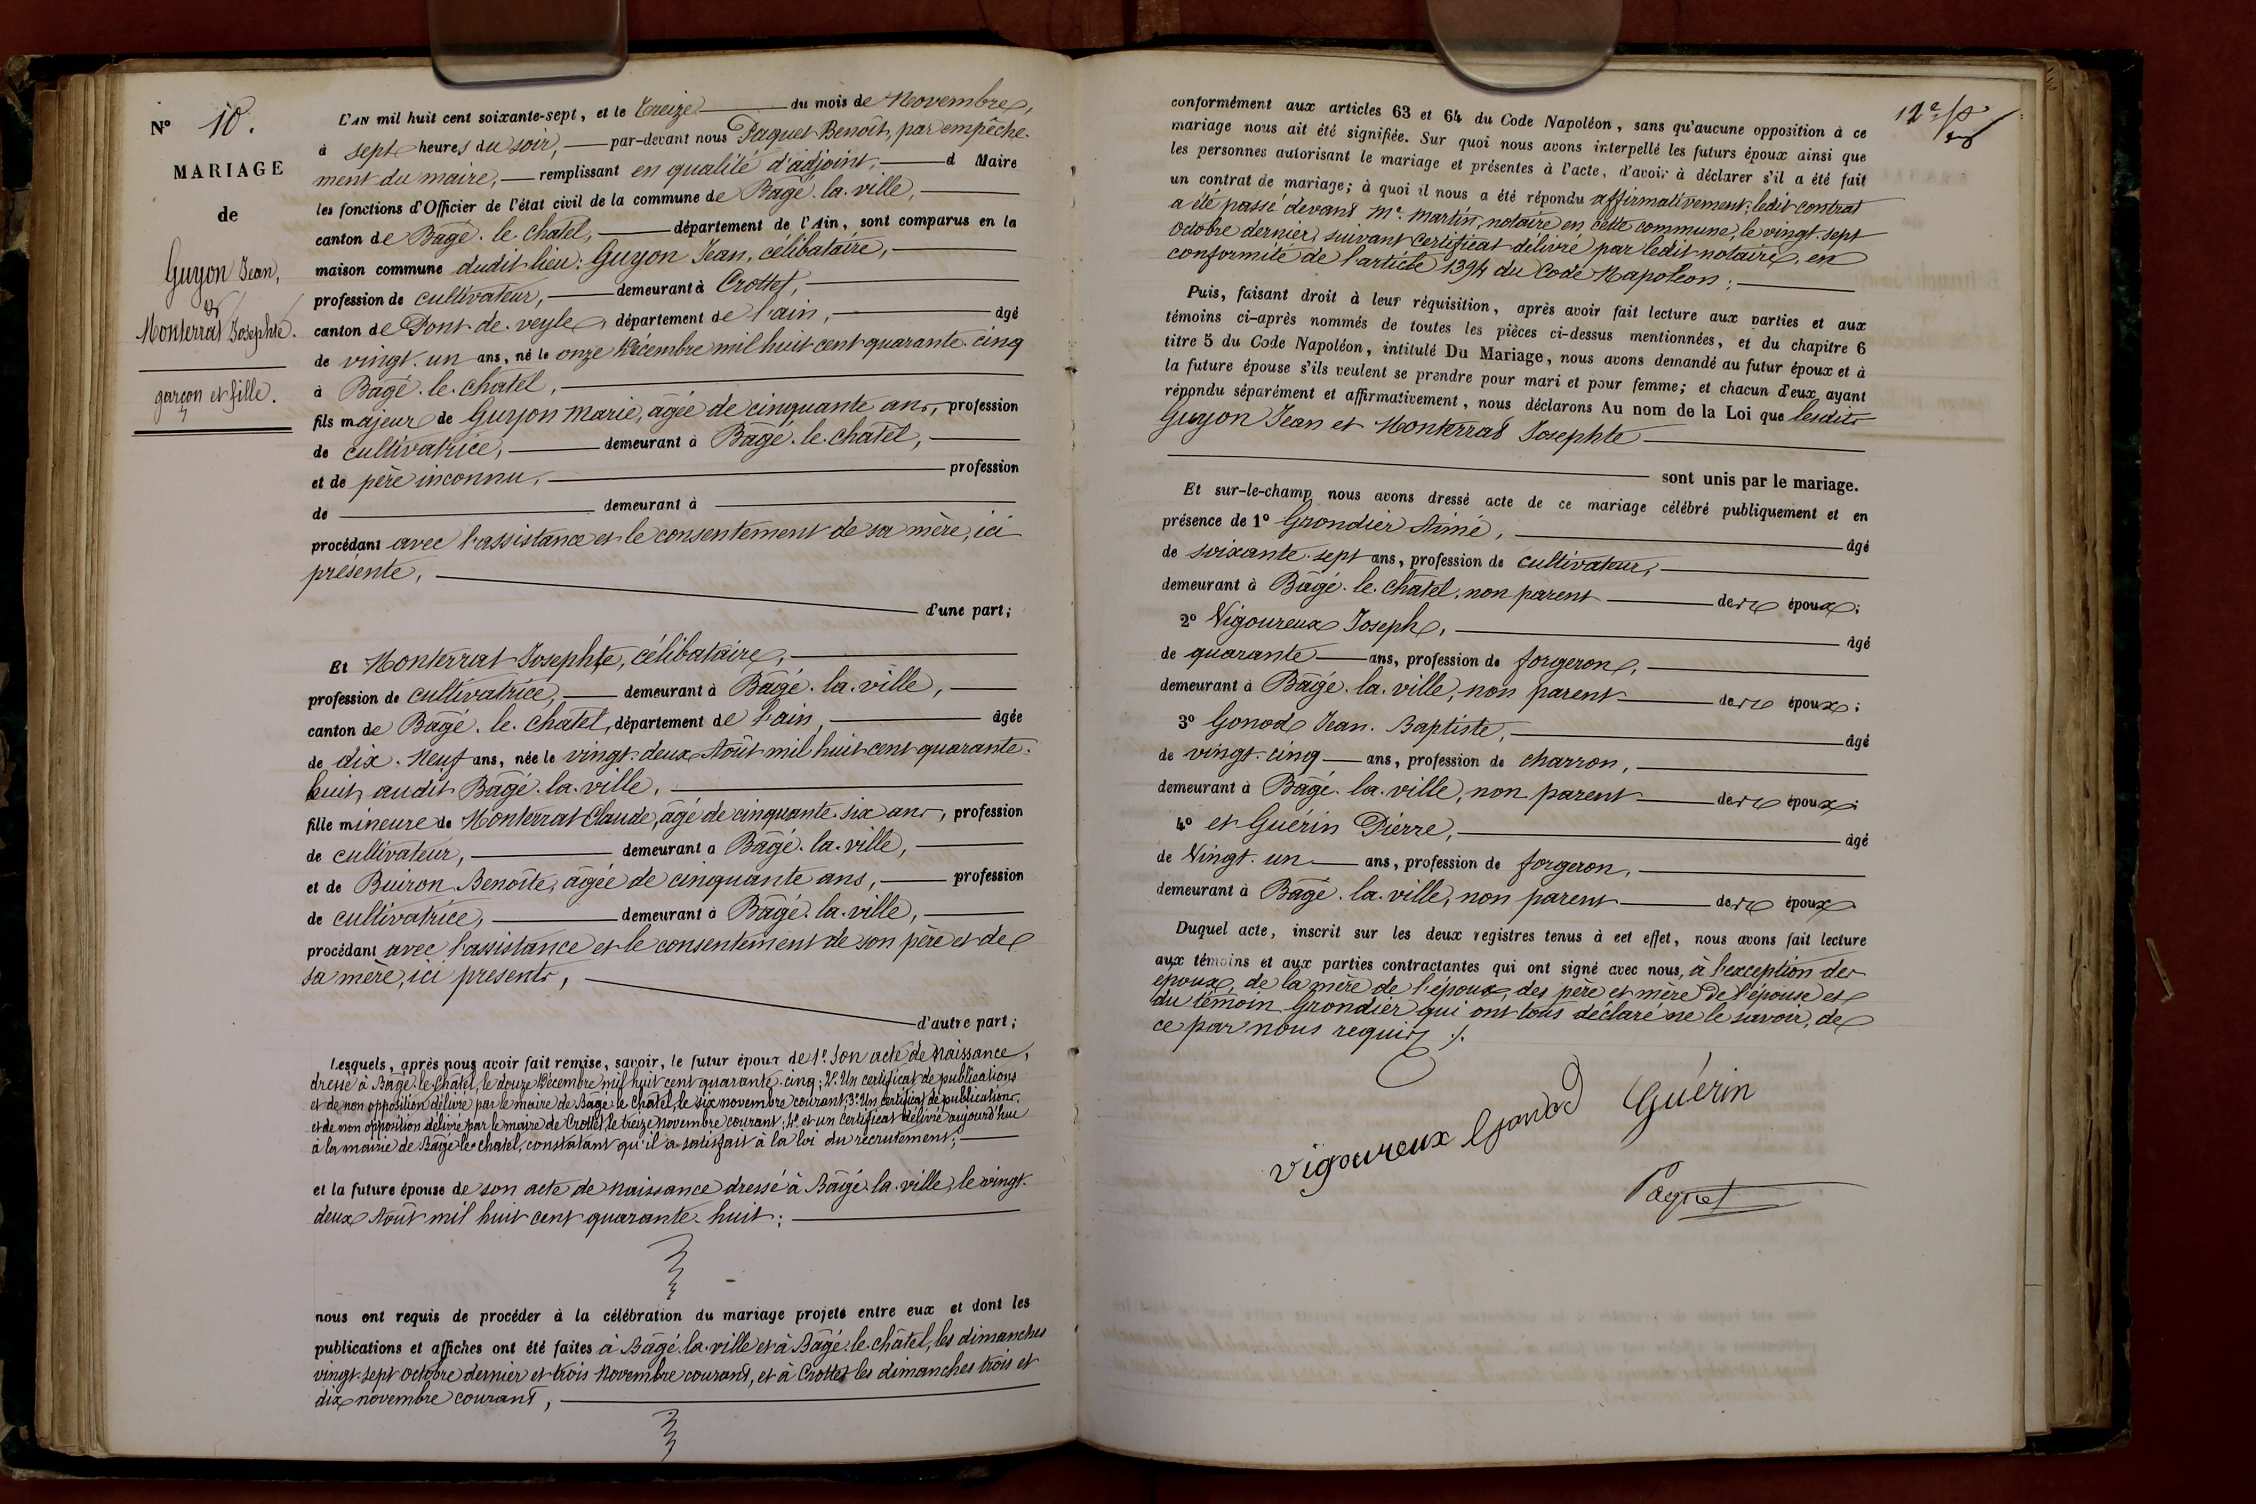 N° 10.
MARIAGE
de
Guyon Jean,
et
Monterrat Josephte.
garçon et fille.
L'AN mil huit cent soixante-sept, et le Treize du mois de Novembre,
à sept heures du soir, par-devant nous Paquet Benoît, par empêche-
ment du maire, remplissant en qualité d'adjoint, d Maire
les fonctions d'Officier de l'état civil de la commune de Bâgé-la-ville,
canton de Bâgé-le-chatel, département de l'Ain, sont comparus en la
maison commune dudit lieu: Guyon Jean, célibataire,
profession de cultivateur, demeurant à Crottet,
canton de Pont-de-veyle, département de l'ain, âgé
de vingt-un ans, né le onze Décembre mil huit cent quarante-cinq
à Bâgé-le-chatel,
fils majeur de Guyon Marie, âgée de cinquante ans, profession
de cultivatrice, demeurant à Bâgé-le-chatel,
et de père inconnu, profession
de demeurant à
procédant avec l'assistance et le consentement de sa mère, ici
présente,
d'une part;
Et Monterrat Josephte, célibataire,
profession de cultivatrice, demeurant à Bâgé-la-ville,
canton de Bâgé-le-chatel, département de l'ain, âgée
de dix-neuf ans, née le vingt-deux Août mil huit cent quarante-
huit, audit Bâgé-la-ville,
fille mineure de Monterrat Claude, âgé de cinquante-six ans, profession
de cultivateur, demeurant à Bâgé-la-ville,
et de Buiron Benoîte, âgée de cinquante ans, profession
de cultivatrice, demeurant à Bâgé-la-ville,
procédant avec l'assistance et le consentement de son père et de
sa mère, ici présents,
d'autre part;
Lesquels, après nous avoir fait remise, savoir, le futur époux de 1° Son acte de Naissance,
dressé à Bâgé-le-châtel, le douze Décembre mil huit cent quarante-cinq; 2° Un certificat de publications
et de non opposition délivré par le maire de Bâgé-le-châtel, le six novembre courant; 3° Un certificat de publications
et de non opposition délivré par le maire de Crottet, le treize Novembre courant; 4° et un certificat délivré aujourd'hui
à la mairie de Bâgé-le-chatel, constatant qu'il a satisfait à la loi du recrutement;
et la future épouse de son acte de Naissance dressé à Bâgé-la-ville, le vingt-
deux Août mil huit cent quarante-huit;
nous ont requis de procéder à la célébration du mariage projeté entre eux et dont les
publications et affiches ont été faites à Bâgé-la-ville et à Bâgé-le-châtel, les dimanches
vingt-sept Octobre dernier et trois Novembre courant, et à Crottet les dimanches trois et
dix novembre courant,
conformément aux articles 63 et 64 du Code Napoléon, sans qu'aucune opposition à ce
mariage nous ait été signifiée. Sur quoi nous avons interpellé les futurs époux ainsi que
les personnes autorisant le mariage et présentes à l'acte, d'avoir à déclarer s'il a été fait
un contrat de mariage; à quoi il nous a été répondu affirmativement; ledit contrat
a été passé devant Me Martin, notaire en cette commune, le vingt-sept
Octobre dernier, suivant certificat délivré par ledit notaire, en
conformité de l'article 1394 du Code Napoléon;
Puis, faisant droit à leur réquisition, après avoir fait lecture aux parties et aux
témoins ci-après nommés de toutes les pièces ci-dessus mentionnées, et du chapitre 6
titre 5 du Code Napoléon, intitulé Du Mariage, nous avons demandé au futur époux et à
la future épouse s'ils veulent se prendre pour mari et pour femme; et chacun d'eux ayant
répondu séparément et affirmativement, nous déclarons Au nom de la Loi que lesdits
Guyon Jean et Monterrat Josephte
sont unis par le mariage.
Et sur-le-champ nous avons dressé acte de ce mariage célébré publiquement et en
présence de 1° Grondier Aimé, âgé
de soixante-sept ans, profession de cultivateur,
demeurant à Bâgé-le-châtel, non parent des époux;
2° Vigoureux Joseph, âgé
de quarante ans, profession de forgeron,
demeurant à Bâgé-la-ville, non parent des époux;
3° Gonod Jean-Baptiste, âgé
de vingt-cinq ans, profession de charron,
demeurant à Bâgé-la-ville, non parent des époux;
4° et Guérin Pierre, âgé
de Vingt-un ans, profession de forgeron,
demeurant à Bâgé-la-ville, non parent des époux
Duquel acte, inscrit sur les deux registres tenus à cet effet, nous avons fait lecture
aux témoins et aux parties contractantes qui ont signé avec nous, à l'exception des
époux, de la mère de l'époux, des père et mère de l'épouse et
du témoin Grondier qui ont tous déclaré ne le savoir, de
ce par nous requis ./.
Vigoureux Gonod Guérin
Paquet